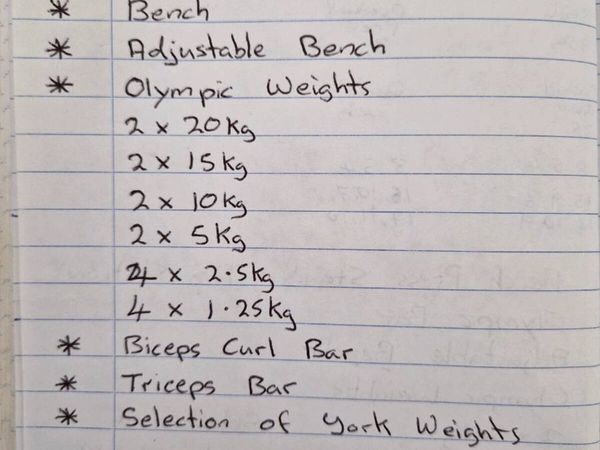 * Bench
* Adjustable Bench
* Olympic Weights
2 x 20kg
2 x 15kg
2 x 10kg
2 x 5kg
4 x 2.5kg
4 x 1.25kg
* Biceps Curl Bar
* Triceps Bar
* Selection of York Weights